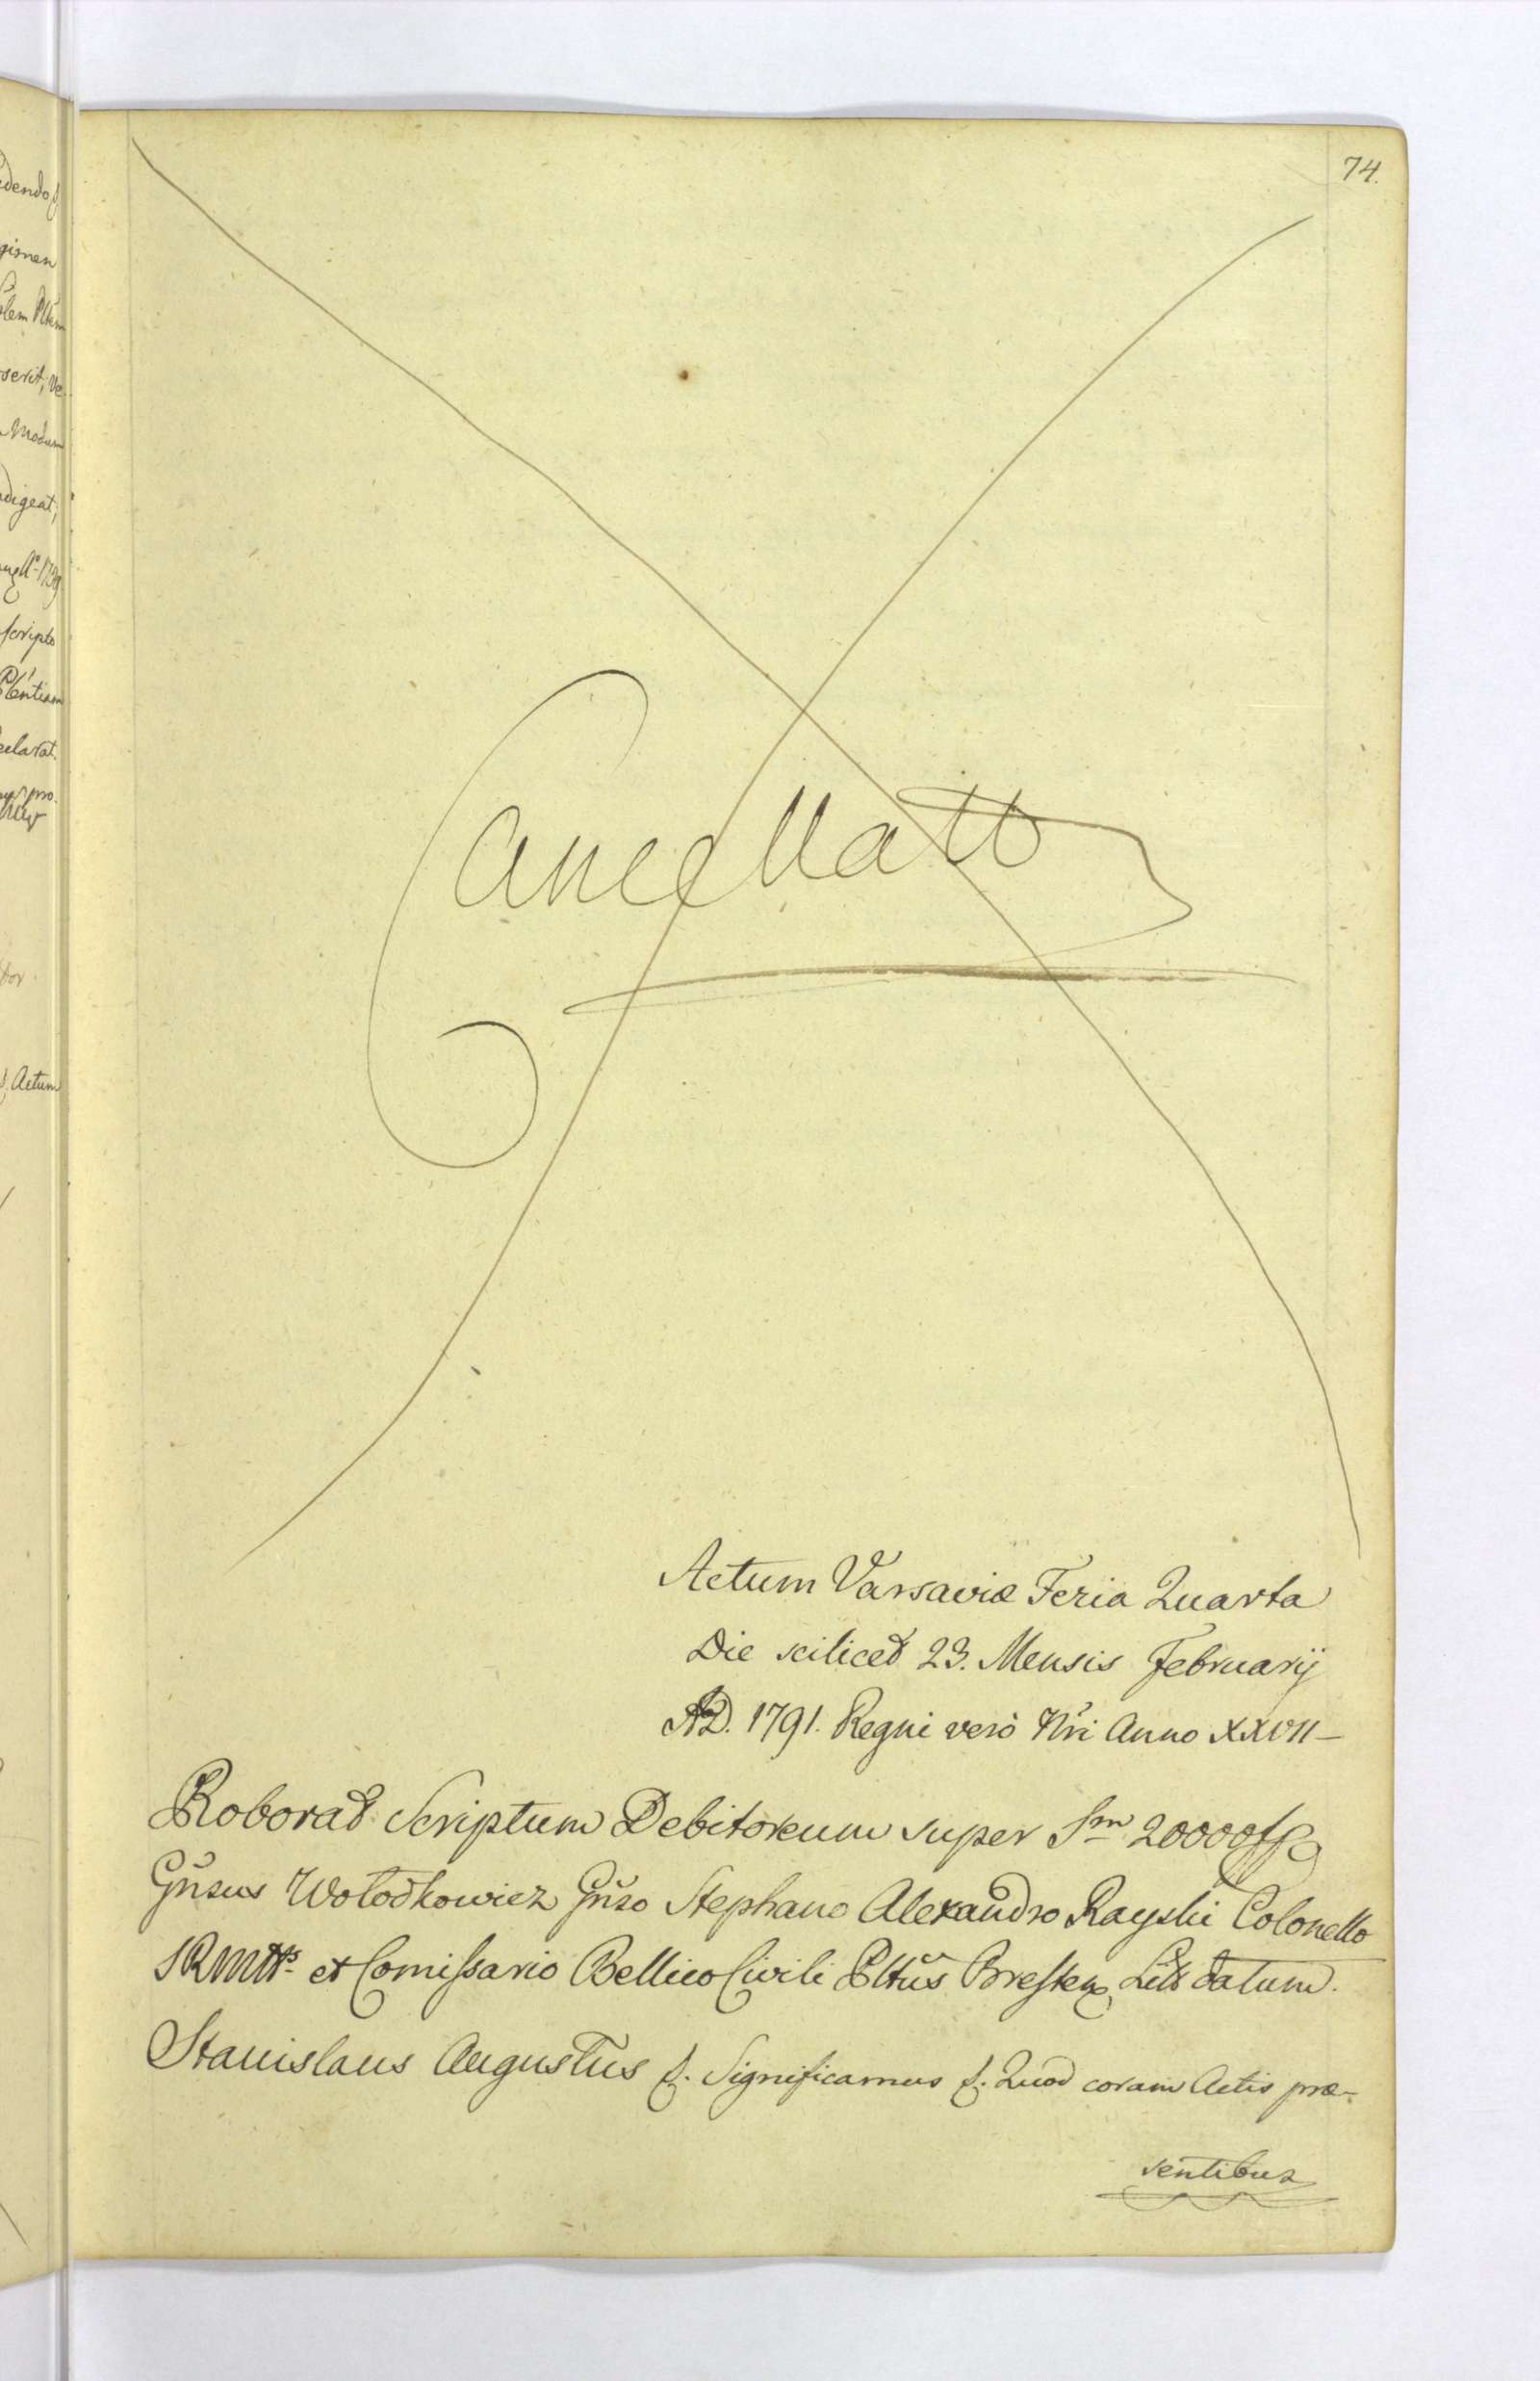 74.
Cancellatto
Actum Varsaviæ Feria Quarta
Die scilicet 23. Mensis Februarij
AD. 1791. Regni verò Nri Anno XXVII
Roborat Scriptum Debitoreum super Sm 20000
Gnsus Wołodkowicz Gnso Stephano Alexandro Rayski Colonello
SRMttis et Comissario Bellico Civili Pltus Bresten, Litt datum.
Stanislaus Augustus &. Significamus &. Quod coram Actis præ-
sentibus
edendo
gimen
serit; Ve-
Modum
digeat,
Scripto
Actum